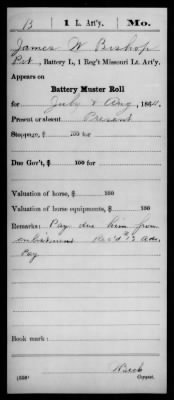 B | 1 L. Art'y. | Mo.
James W Bishop
Pvt, Battery L, 1 Reg't Missouri Lt. Art'y.
Appears on
Battery Muster Roll
for July & Aug, 1864.
Present or absent Present
Stoppage, $ 100 for
Due Gov't, $ 100 for
Valuation of horse, $ 100
Valuation of horse equipments, $ 100
Remarks: Pay due him from
enlistment Rec'd $13 Adv.
Pay
Book mark:
(858)
Copyist.